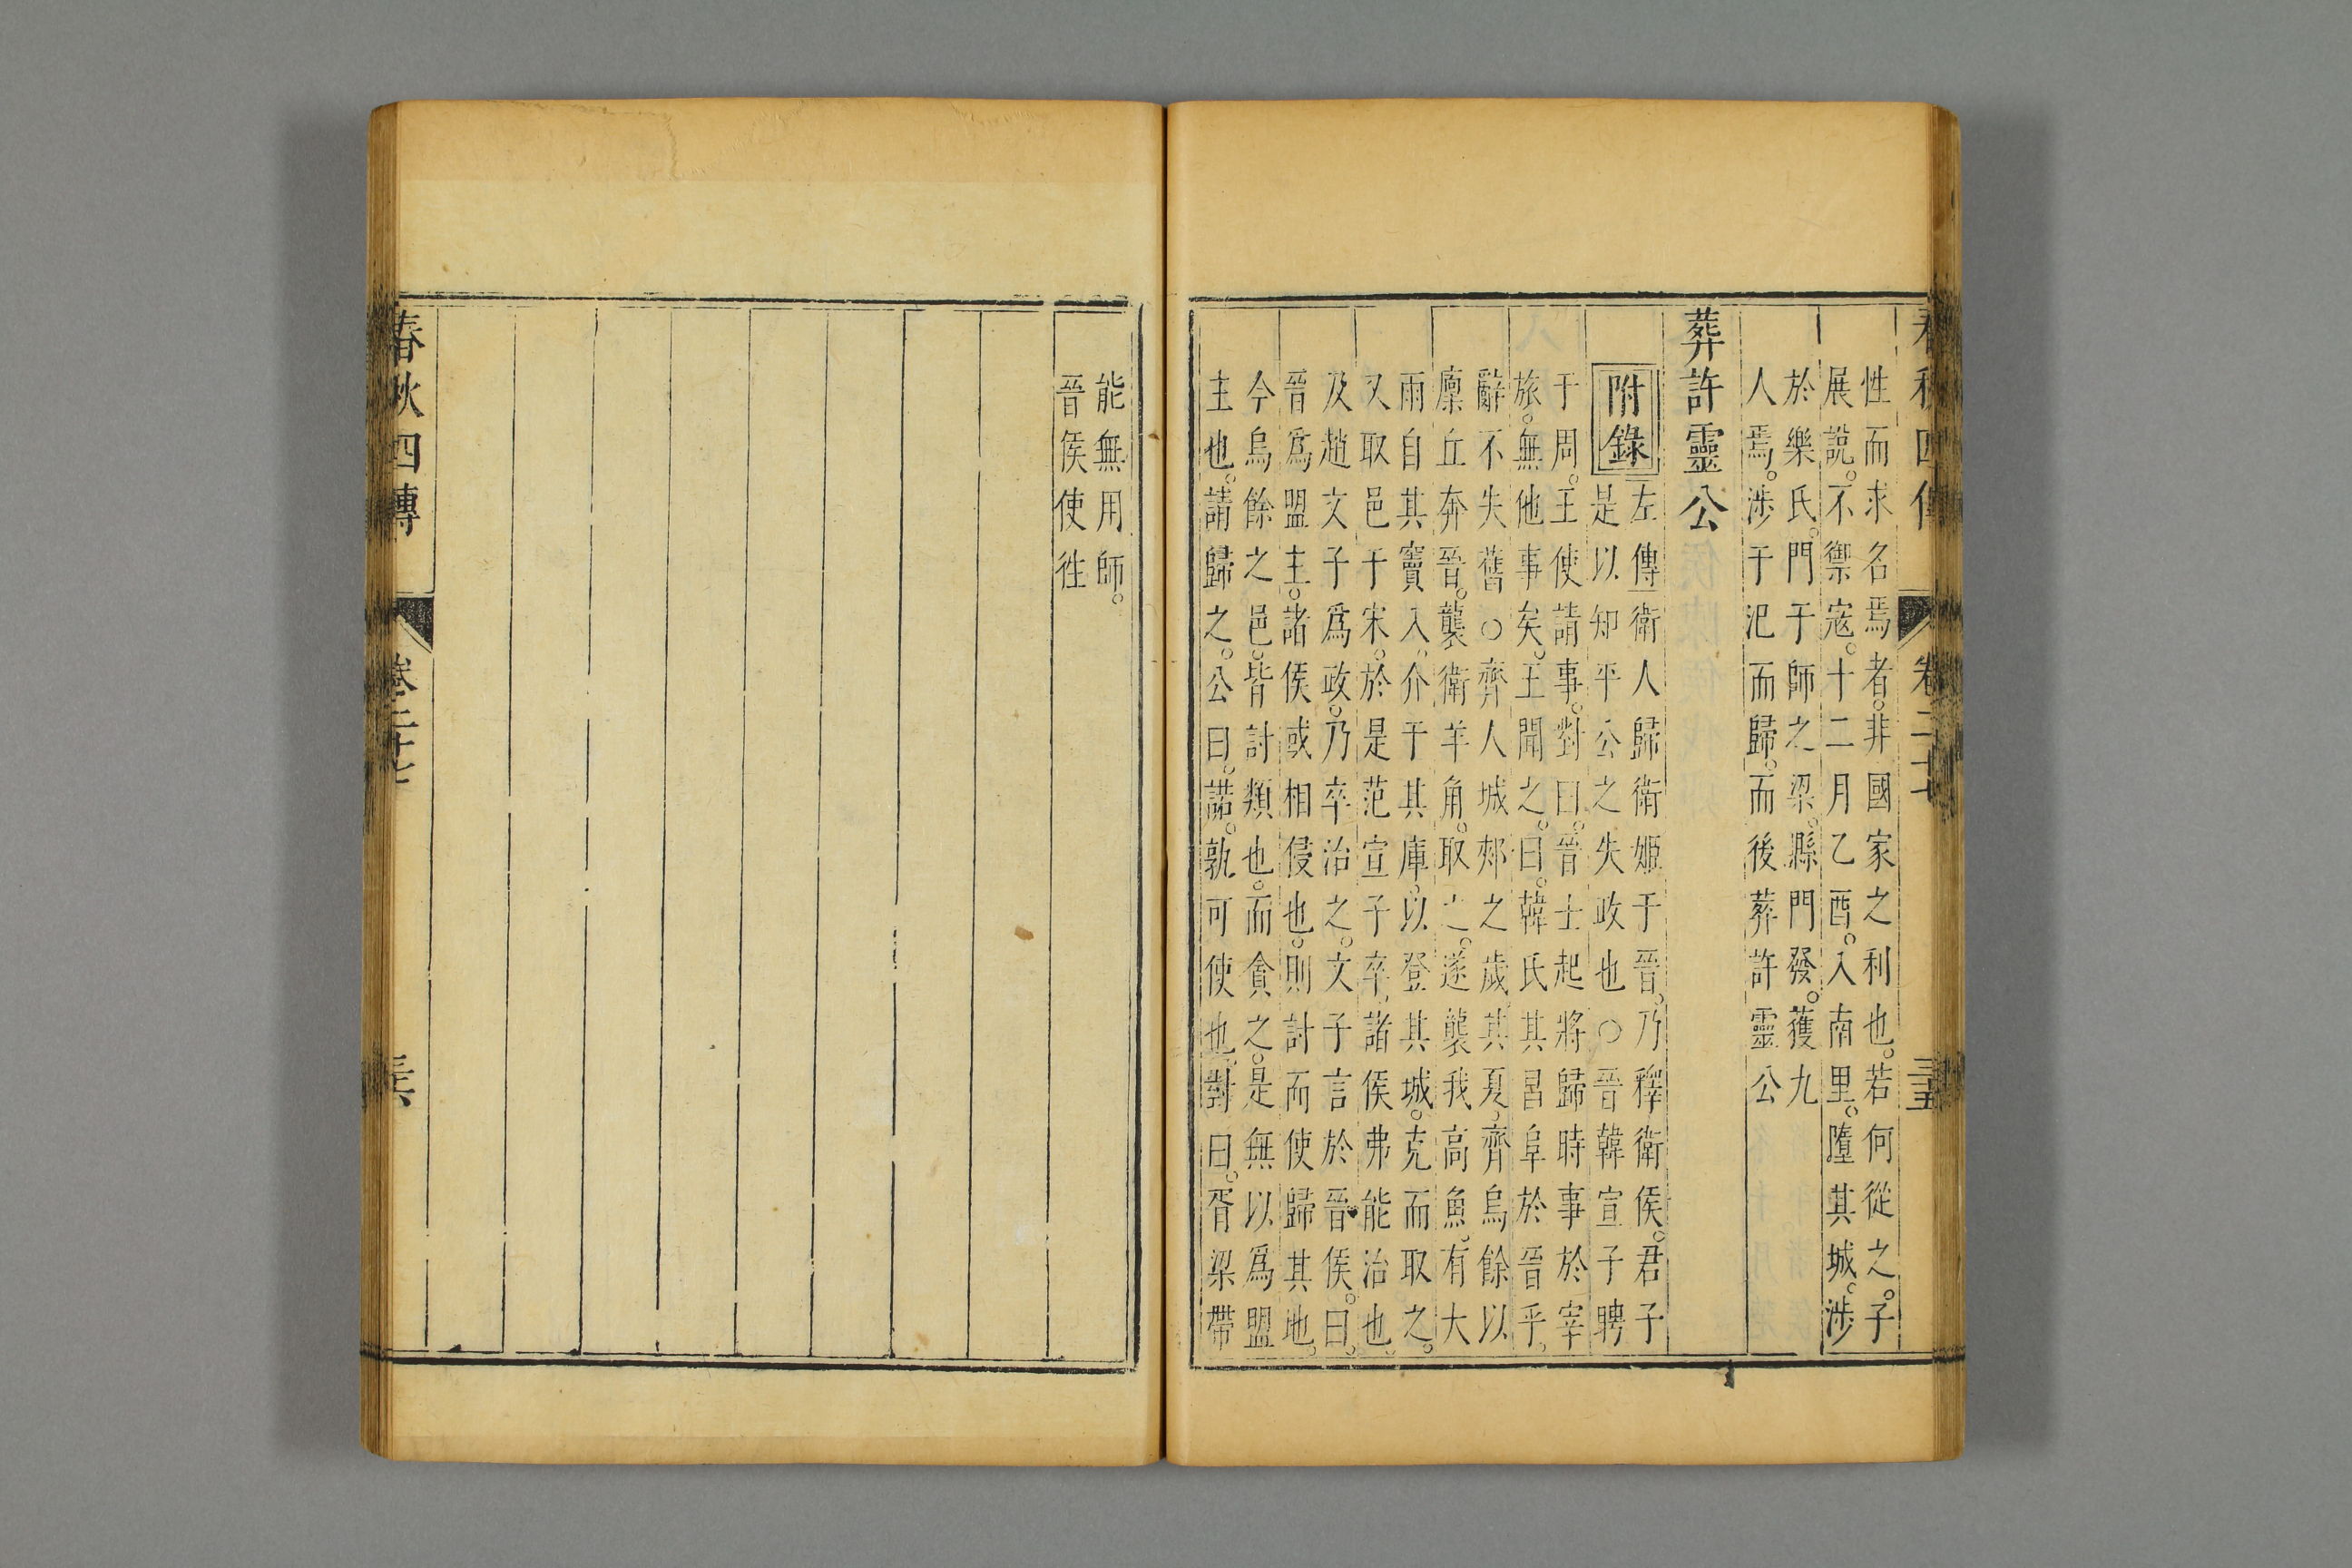 春秋四傳 卷二十七 三五
性而求名焉者。非國家之利也。若何從之。子
展說。不禦寇。十二月乙酉。入南里。墮其城。涉
於樂氏。門于師之梁。縣門發。獲九
人焉。涉于氾而歸。而後葬許靈公
葬許靈公
附錄
左傳衛人歸衛姬于晉。乃釋衛侯。君子
是以知平公之失政也○晉韓宣子聘
于周。王使請事。對曰。晉士起將歸時事於宰
旅。無他事矣。王聞之。曰。韓氏其昌阜於晉乎。
辭不失舊○齊人城郟之歲。其夏。齊烏餘以
廩丘奔晉。襲衛羊角。取之。遂襲我高魚。有大
雨自其竇入。介于其庫。以登其城。克而取之。
又取邑于宋。於是范宣子卒。諸侯弗能治也。
及趙文子為政。乃卒治之。文子言於晉侯。曰。
晉爲盟主。諸侯或相侵也。則討而使歸其地。
今烏餘之邑。皆討類也。而貪之。是無以爲盟
主也。請歸之。公曰。諾。孰可使也。對曰。胥梁帶
能無用師。
晉侯使徃
春秋四傳 卷二十七